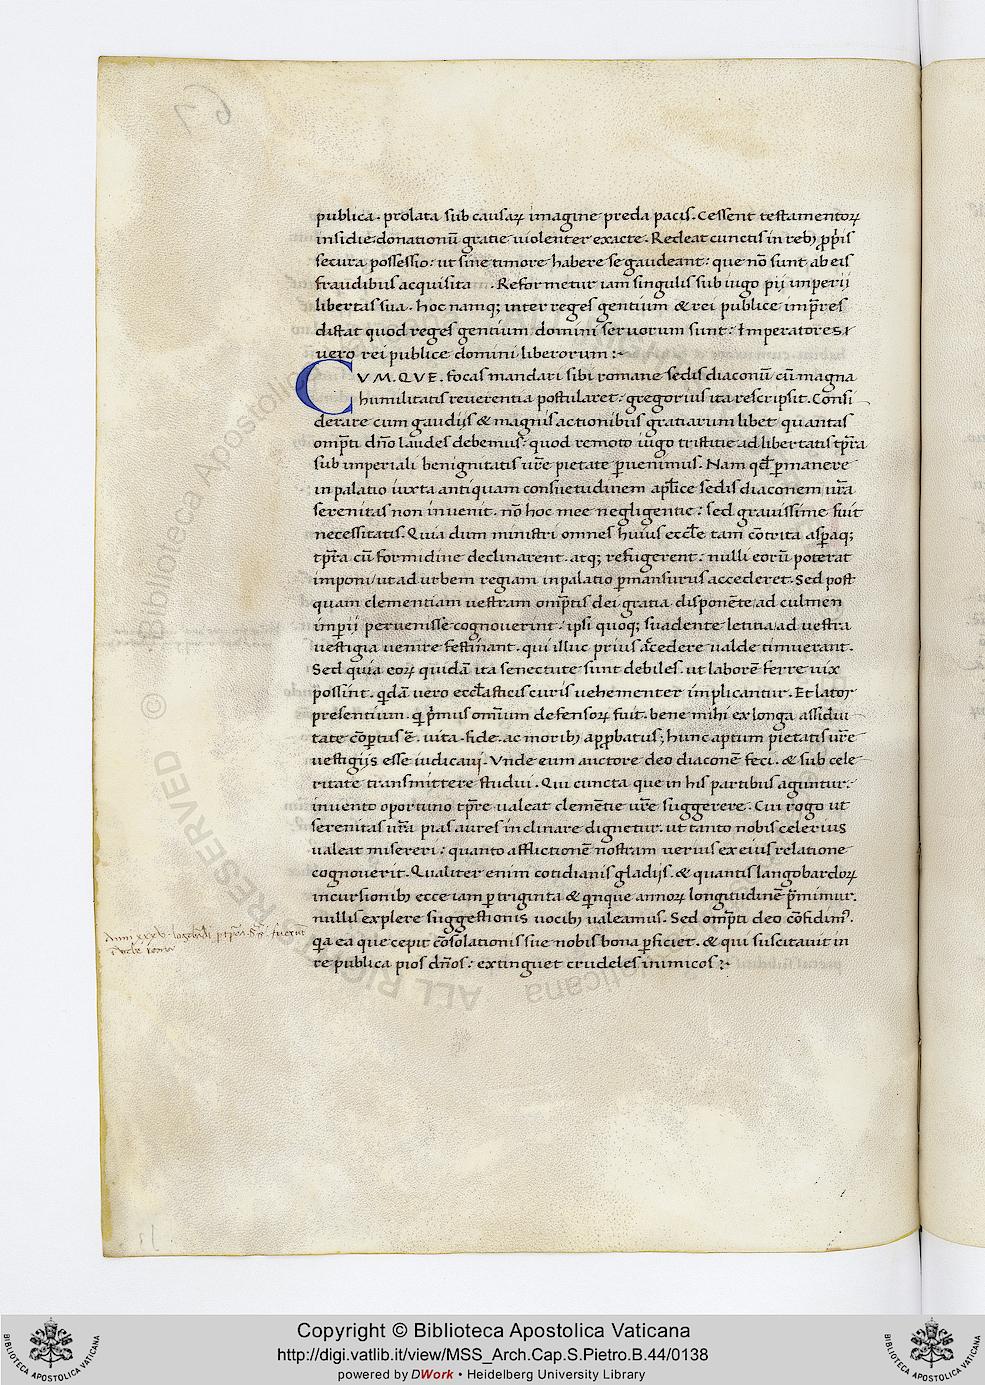 publica. prolata sub causaꝝ imagine preda pacis. Cessent testamentoꝝ
insidie: donationū gratie uiolenter exacte. Redeat cunctis in rebꝫ ꝓp̄iis
secura possessio: ut sine timore habere se gaudeant: que nō sunt ab eis
fraudibus acquisita . Reformetur iam singulis sub iugo pij imperij
libertas sua. hoc namqꝫ inter reges gentium & rei publice imp̄res
distat quod reges gentium domini seruorum sunt: Imperatores
uero rei publice domini liberorum :~
CVM.QVE. focas mandari sibi romane sedis diaconū cū magna
humilitatis reuerentia postularet: gregorius ita rescripsit. Consi
derare cum gaudijs & magnis actionibus gratiarum libet quantas
omp̄ti dn̄o laudes debemus: quod remoto iugo tristitie ad libertatis tp̄ra
sub imperiali benignitatis ur̄e pietate ꝑuenimus. Nam qd̄ ꝑmanere
in palatio iuxta antiquam consuetudinem apl̄ice sedis diaconem ur̄a
serenitas non inuenit. nō hoc mee negligentie: sed grauissime fuit
necessitatis. Quia dum ministri omnes huius eccl̄e tam cōtrita asꝑaqꝫ
tp̄ra cū formidine declinarent. atqꝫ refugerent: nulli eorū poterat
imponi ut ad urbem regiam in palatio ꝑmansurus accederet. Sed post
quam clementiam uestram omp̄tis dei gratia disponēte ad culmen
imꝑii peruenisse cognouerint: ipsi quoqꝫ suadente letitia ad uestra
uestigia uenire festinant. qui illuc prius accedere ualde timuerant.
Sed quia eoꝝ quidā ita senectute sunt debiles. ut laborē ferre uix
possint. qdā uero eccl̄asticis curis uehementer implicantur. Et lator
presentium. q p̄mus omnium defensoꝝ fuit. bene mihi ex longa assidui
tate cōꝑtus ē. uita. fide. ac moribꝫ apꝓbatus; hunc aptum pietatis ur̄e
uestigijs esse iudicaui. Vnde eum auctore deo diaconē feci. & sub cele
ritate transmittere studui. Qui cuncta que in his partibus aguntur.
inuento oportuno tp̄re ualeat clemētie ur̄e suggerere. Cui rogo ut
serenitas ur̄a pias aures inclinare dignetur. ut tanto nobis celerius
ualeat misereri: quanto afflictionē nostram uerius ex eius relatione
cognouerit. Qualiter enim cotidianis gladijs. & quantis langobardoꝝ
incursionibꝫ ecce iam ꝑ triginta & qnque annoꝝ longitudinē p̄mimur.
nullis explere suggestionis uocibꝫ ualeamus. Sed omp̄ti deo cōfidim᷒.
qa ea que cepit cōsolationis sue nobis bona ꝑficiet. & qui suscitauit in
re publica pios dn̄os: extinguet crudeles inimicos :~
Anni xxxv.
Copyright © Biblioteca Apostolica Vaticana
http://digi.vatlib.it/view/MSS_Arch.Cap.S.Pietro.B.44/0138
powered by DWork • Heidelberg University Library